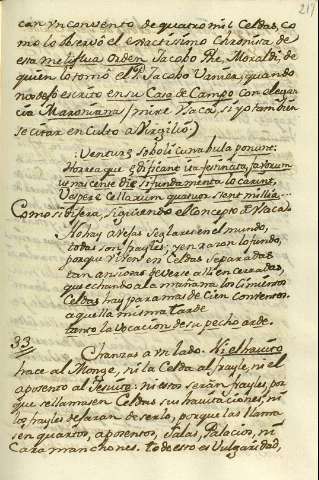 217
can vn convento de quatro mil Celdas, co
mo lo observó el exactissimo Chronista de
esa meliflua Orden Jacobo Phe. Moraldi, de
quien lo tomó el P. Jacobo Vanier, quando
nos dejó escrito en su Casa de Campo con elegan
cia Maroniana (mire Vaca, si yo tambien
se citar en Culto a Virgilio.)
Ventura soboli cunabula ponunt:
Horrea que ædificant ita festinata, favorum
vt nascente die si fundamenta locarint,
Vespere Cellarum quatuor stent millia...
Como si dixera, siguiendo el concepto de Vaca:
No hay avejas Seglares en el mundo,
todas son frayles; yen razon lo fundo,
porque viven en Celdas separadas
tan ansiosas de verse alli encerradas,
que echando a la mañana los Cimientos
Celdas hay para mas de Cien Conventos.
aquella misma tarde
tanto la vocacion de su pecho arde.
33
Chanzas a vn lado. Ni el havito
hace al Monge, ni la Celda al frayle, ni el
aposento al Jesuita: ni estos serán frayles, por
que se llamasen Celdas sus havitaciones, ni
los frayles dejaran de serlo, porque las llama
sen quartos, aposentos, Salas, Palacios, ni
Caramanchones. todo esto es Vulgaridad,